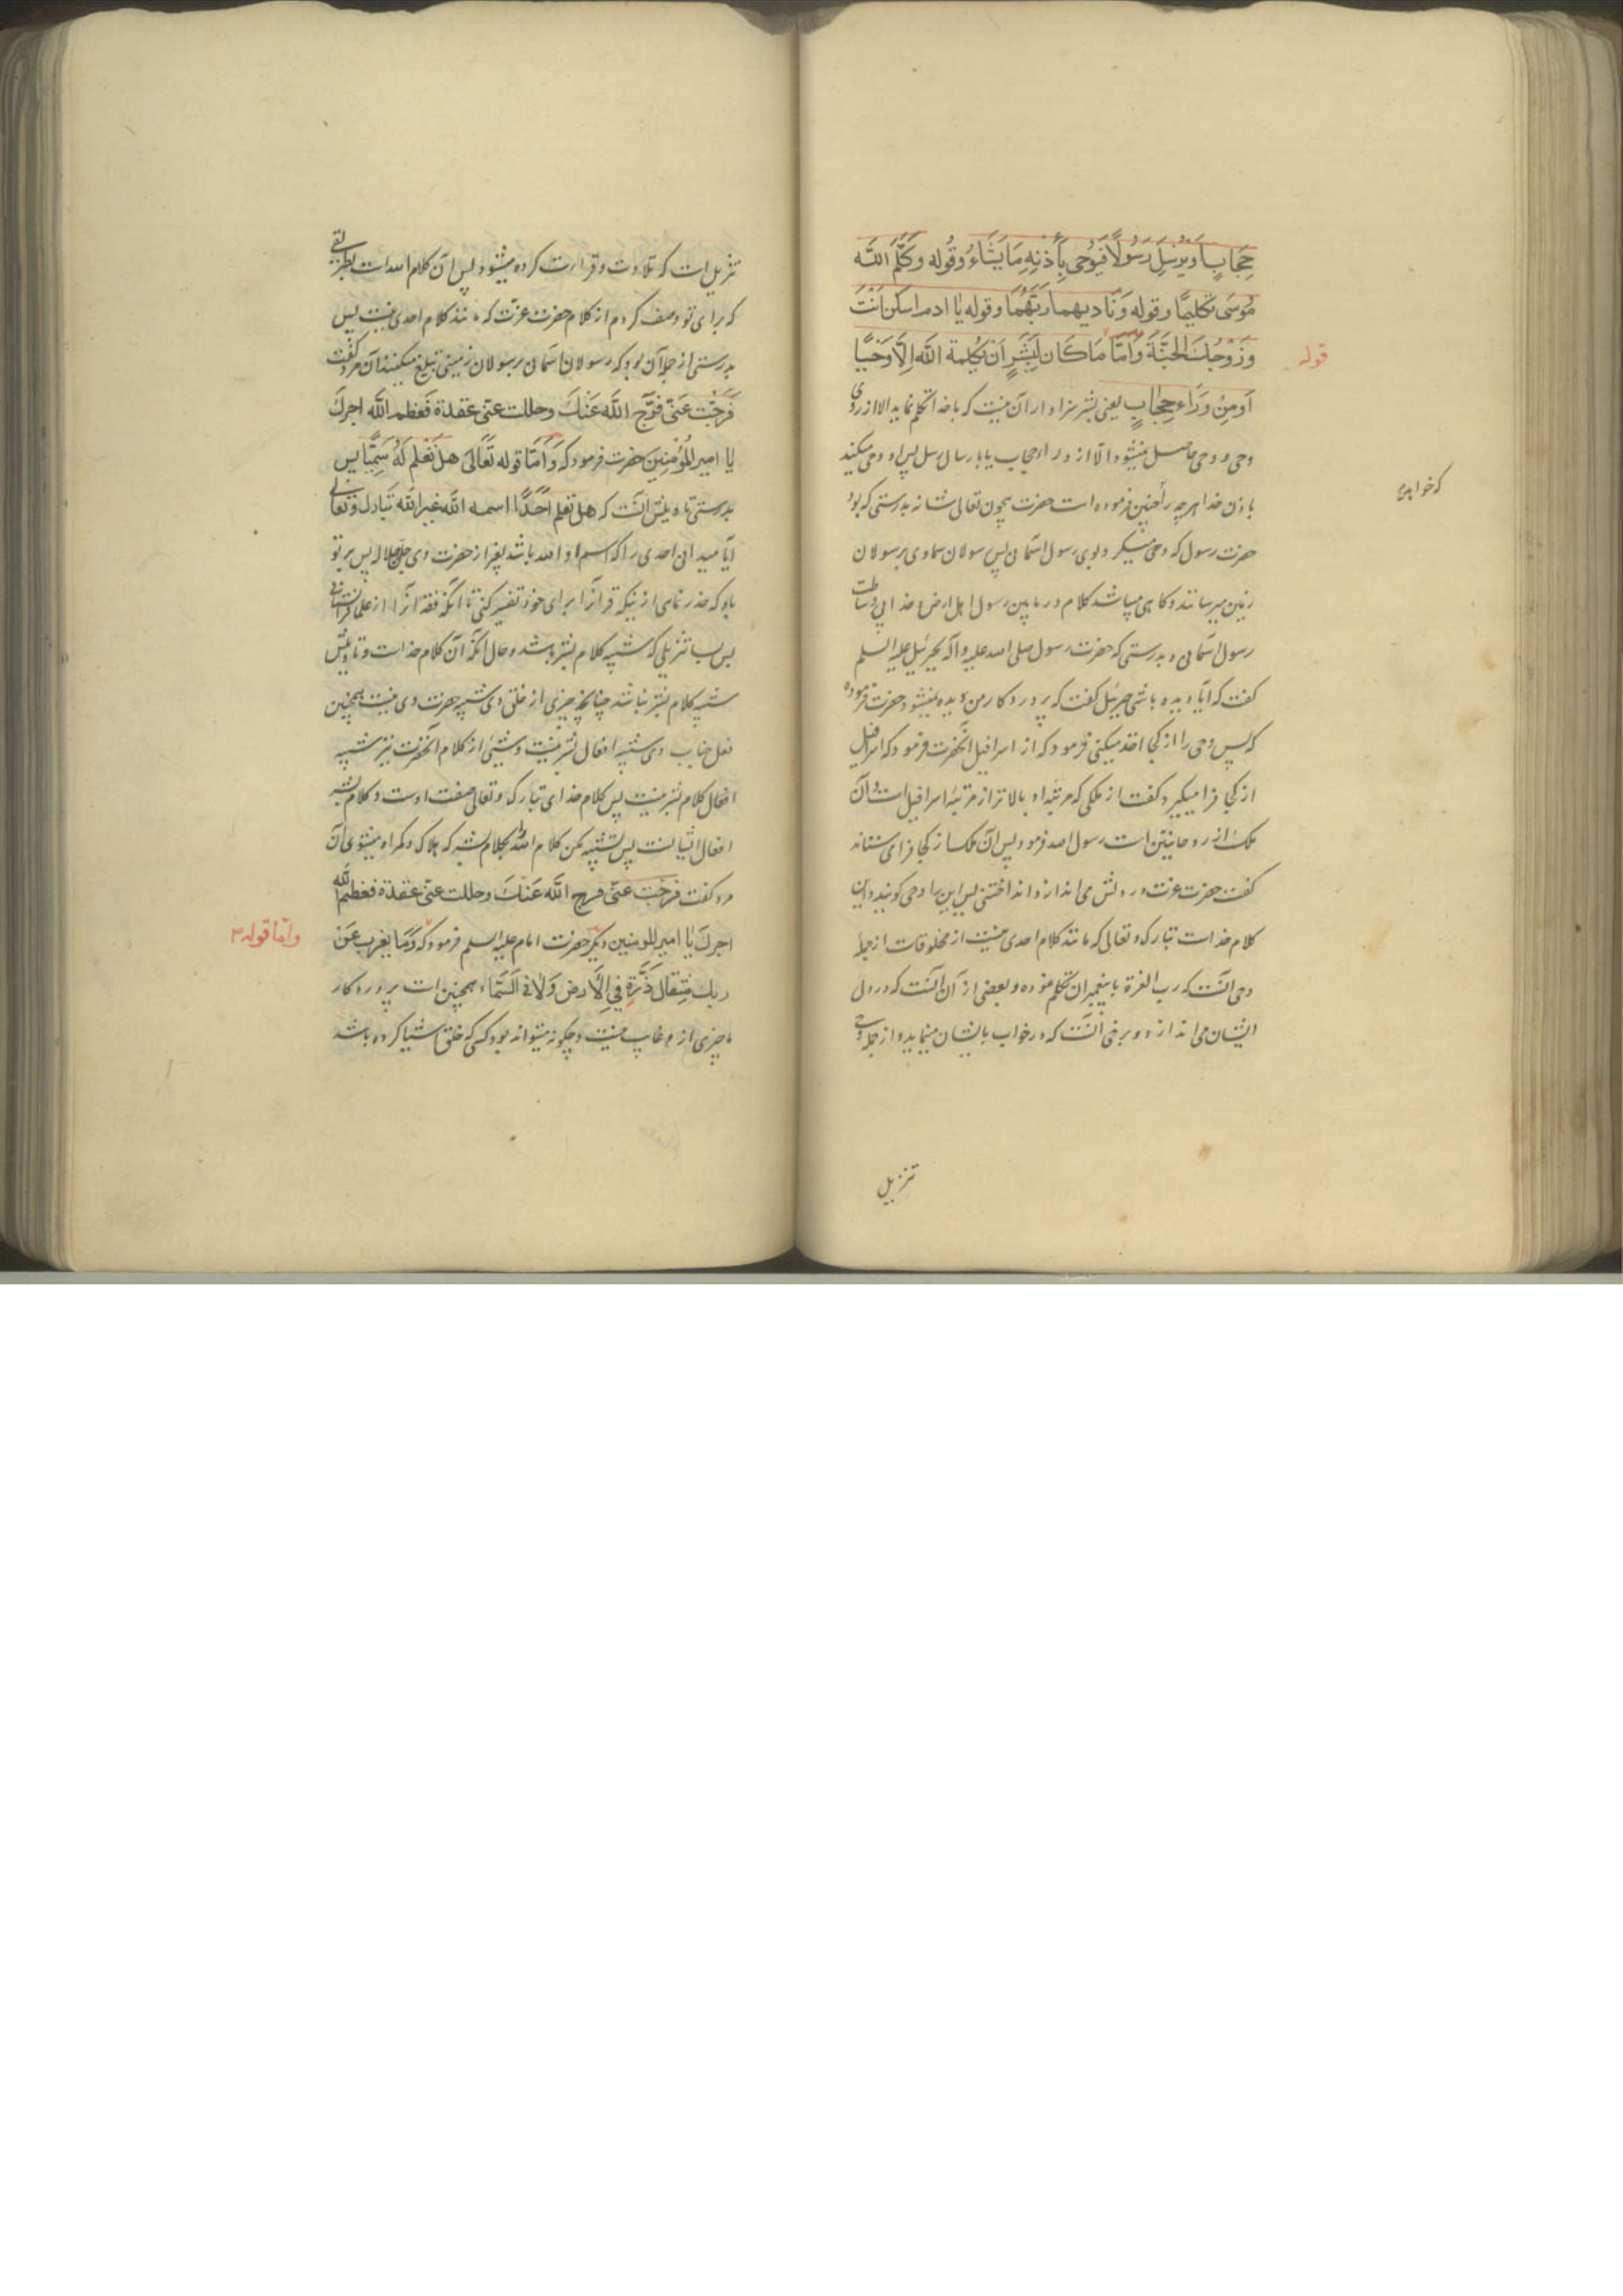 حِجَابٍ اَو يُرْسِلَ رَسُولًا فَيُوحِىَ بِأِذنِهِ مَا يَشَاءُ وَقُوله وَكَلَّمَ اللّه
مُوسَى تَكليمًا وقوله وَنَاديهما رَبّهُمَا وقوله يٰا ادم اسكن اَنْتَ
وَزَوْجُكَ الجَنَّةَ وَاَمّا مَا كَانَ لِبَشَرٍ اَنْ يُكلِمهُ اللّه اِلَّا وَحْيًا
قوله
اَومِنْ وَرَاءِ حِجٰابٍ يعنى بشر سزاوار آن نيست كه با خدا تكلم نمايد الا از روى
وحى و وحى حاصل نميشود الّا از وراء حجاب يا بارسال رسل پس او وحى ميكند
باذن خدا هر چه را چنين فرموده است حضرت بيچون تعالى شانه بدرستى كه بود
كه خواهد
حضرت رسول كه وحى ميكرد بوى رسول اسمان پس رسولان سماوى برسولان
زمين ميرسانند و كاهى ميباشد كلام در مابين رسول اهل ارض و خدا بى وساطت
رسول اسمانى و بدرستى كه حضرت رسول صلى الله عليه و آله بجبرئيل عليه السلم
كفت كه ايا ديده باشى جبرئيل كفت كه پروردكار من ديده نميشود حضرت فرموده
كه پس وحى را از كجا اخذ ميكنى فرمود كه از اسرافيل انحضرت فرمود كه اسرافيل
از كجا فرا ميكيرد كفت از ملكى كه مرتبه او بالاتر از مرتبه اسرافيل است و آن
ملك از روحانيين است رسول الله فرمود پس آن ملك از كجا فرا مى ستاند
كفت حضرت عزت در دلش مى اندازد انداختنى پس اين را وحى كويند و اين
كلام خداست تبارك و تعالى كه مانند كلام احدى نيست از مخلوقات از جمله
وحى آنست كه رب العزة با پيغمبران تكلم نموده و بعضى از آن آنست كه در دل
ايشان مى اندازد و برخى آنست كه در خواب بايشان مينمايد و از جمله وحى
تنزيل
تنزيل است كه تلاوت و قرائت كرده ميشود پس آن كلام الله است بطريقى
كه براى تو وصف كردم از كلام حضرت عزّت كه مانند كلام احدى نيست پس
بدرستى از جمله آن بود كه رسولان اسمان برسولان زمينى تبليغ ميكنند آن مرد كفت
فَرجّت عَنّى فَرَّج اللّه عَنكَ وحللت عنّى عقدة فَعظم اللّه اجركَ
يٰا امير المُؤمِنِين حضرت فرمود كه وَاَمّا قوله تَعَالىٰ هَلْ تَعْلَم لَهُ سَمِيًّا پس
بدرستى تاويلش آنست كه هل تعلم اَحَدًا اسمه اللّه غير اللّه تَبارك وَتعَالىٰ
آيا ميدانى احدى را كه اسم او الله باشد بغير از حضرت وى جل جلاله پس بر تو
باد كه حذر نمائى از نيكه قرآن را براى خود تفسير كنى تا آنكه فقه آنرا از علما فرا نستانى
پس بسا تنزيلى كه شبيه كلام بشر باشد و حال آنكه آن كلام خداست و تاويلش
شبيه كلام بشر نباشد چنانچه چيزى از خلق وى شبيه حضرت وى نيست همچنين
فعل جناب وى شبيه افعال بشر نيست و شيئى از كلام آنحضرت نيز شبيه
افعال كلام بشر نيست پس كلام خداى تبارك و تعالى صفت اوست و كلام بشر
افعال ايشانست پس تشبيه مكن كلام الله را بكلام بشر كه هلاك و كمراه ميشوى آن
مرد كفت فرجت عنّى فرج اللّه عَنكَ وحللت عنّى عقدة فعظم اللّه
اجركَ يٰا امير المومنين ديكر حضرت امام عليه السلم فرمود كه وَمَا يعزب عَن
وامّا قوله
ربك مِثقال ذَرَّةٍ فِي الاَرضِ وَلاٰ فى السَّمَاء همچنين است پروردكار
ما چيزى ازو غايب نيست و چكونه ميتواند بود كسى كه خلق اشيا كرده باشد